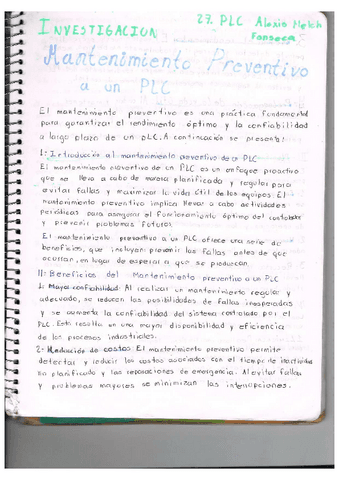 INVESTIGACION
27. PLC Alexis Melch
Fonseca
Mantenimiento Preventivo
a un PLC
El mantenimiento preventivo es una práctica fundamental
para garantizar el rendimiento óptimo y la confiabilidad
a largo plazo de un PLC. A continuación se presenta:
I: Introducción al mantenimiento preventivo de un PLC
El mantenimiento preventivo de un PLC es un enfoque proactivo
que se lleva a cabo de manera planificada y regular para
evitar fallas y maximizar la vida útil de los equipos. El
mantenimiento preventivo implica llevar a cabo actividades
periódicas para asegurar el funcionamiento óptimo del controlador
y prevenir problemas futuros.
El mantenimiento preventivo a un PLC ofrece una serie de
beneficios, que incluyen: prevenir las fallas antes de que
ocurran, en lugar de esperar a que se produzcan.
II: Beneficios del Mantenimiento preventivo a un PLC
1: Mayor confiabilidad: Al realizar un mantenimiento regular y
adecuado, se reducen las posibilidades de fallas inesperadas
y se aumenta la confiabilidad del sistema controlado por el
PLC. Esto resulta en una mayor disponibilidad y eficiencia
de los procesos industriales.
2- Reducción de costos: El mantenimiento preventivo permite
detectar y reducir los costos asociados con el tiempo de inactividad
no planificado y las reparaciones de emergencia. Al evitar fallas
y problemas mayores se minimizan las interrupciones.